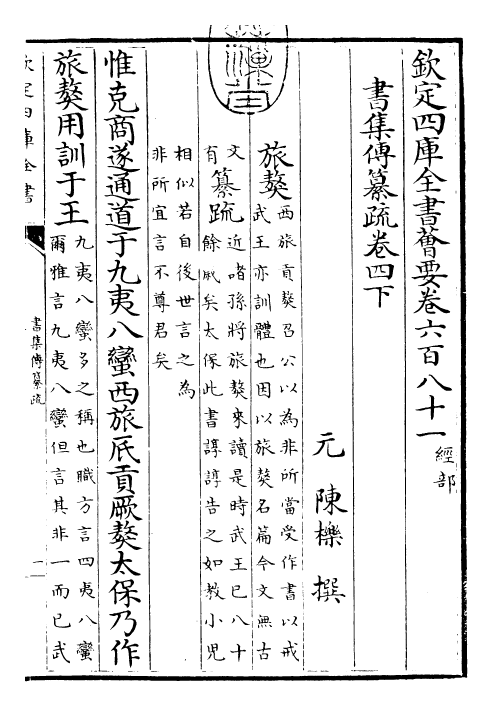 欽定四庫全書薈要卷六百八十一 經部
書集傳纂疏卷四下
元 陳櫟 撰
旅獒
西旅貢獒召公以為非所當受作書以戒
武王亦訓體也因以旅獒名篇今文無古
文
有
纂疏
近諸孫將旅獒來讀是時武王已八十
餘歲矣太保此書諄諄告之如教小児
相似若自後世言之為
非所宜言不尊君矣
惟克商遂通道于九夷八蠻西旅厎貢厥獒太保乃作
旅獒用訓于王
九夷八蠻多之稱也職方言四夷八蠻
爾雅言九夷八蠻但言其非一而已武
欽定四庫全書
書集傳纂疏
一